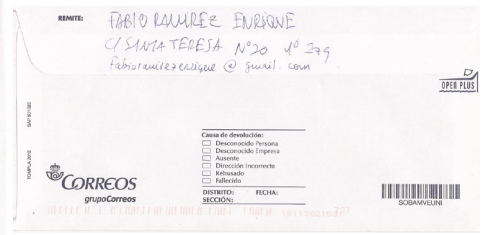 REMITE: FABIO RAMIREZ ENRIQUE
C/ SANTA TERESA Nº20 1º
fabioramirezenrique @ gmail. com
OPEN PLUS
TOMPLA 2010
Correos
grupoCorreos
Causa de devolución:
Desconocido Persona
Desconocido Empresa
Ausente
Dirección Incorrecta
Rehusado
Fallecido
DISTRITO: FECHA:
SECCIÓN:
SOBAMVEUNI